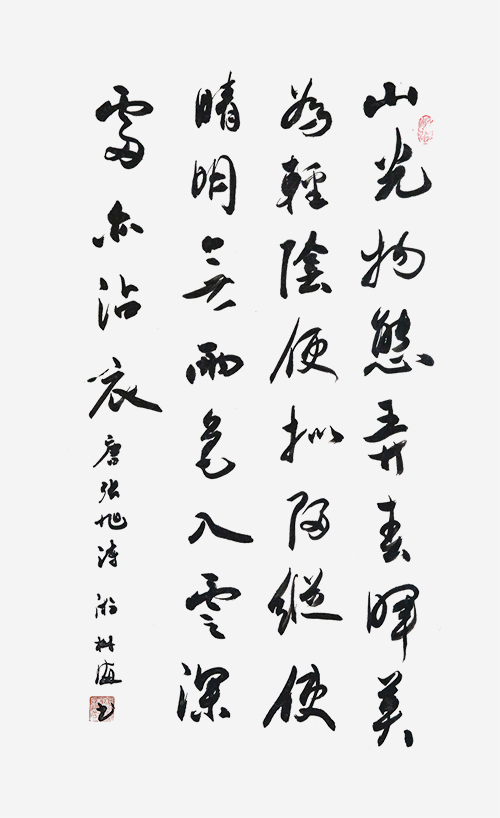 山光物態弄春暉莫
為輕陰便拟歸縱使
晴明無雨色入雲深
處亦沾衣 唐張旭詩